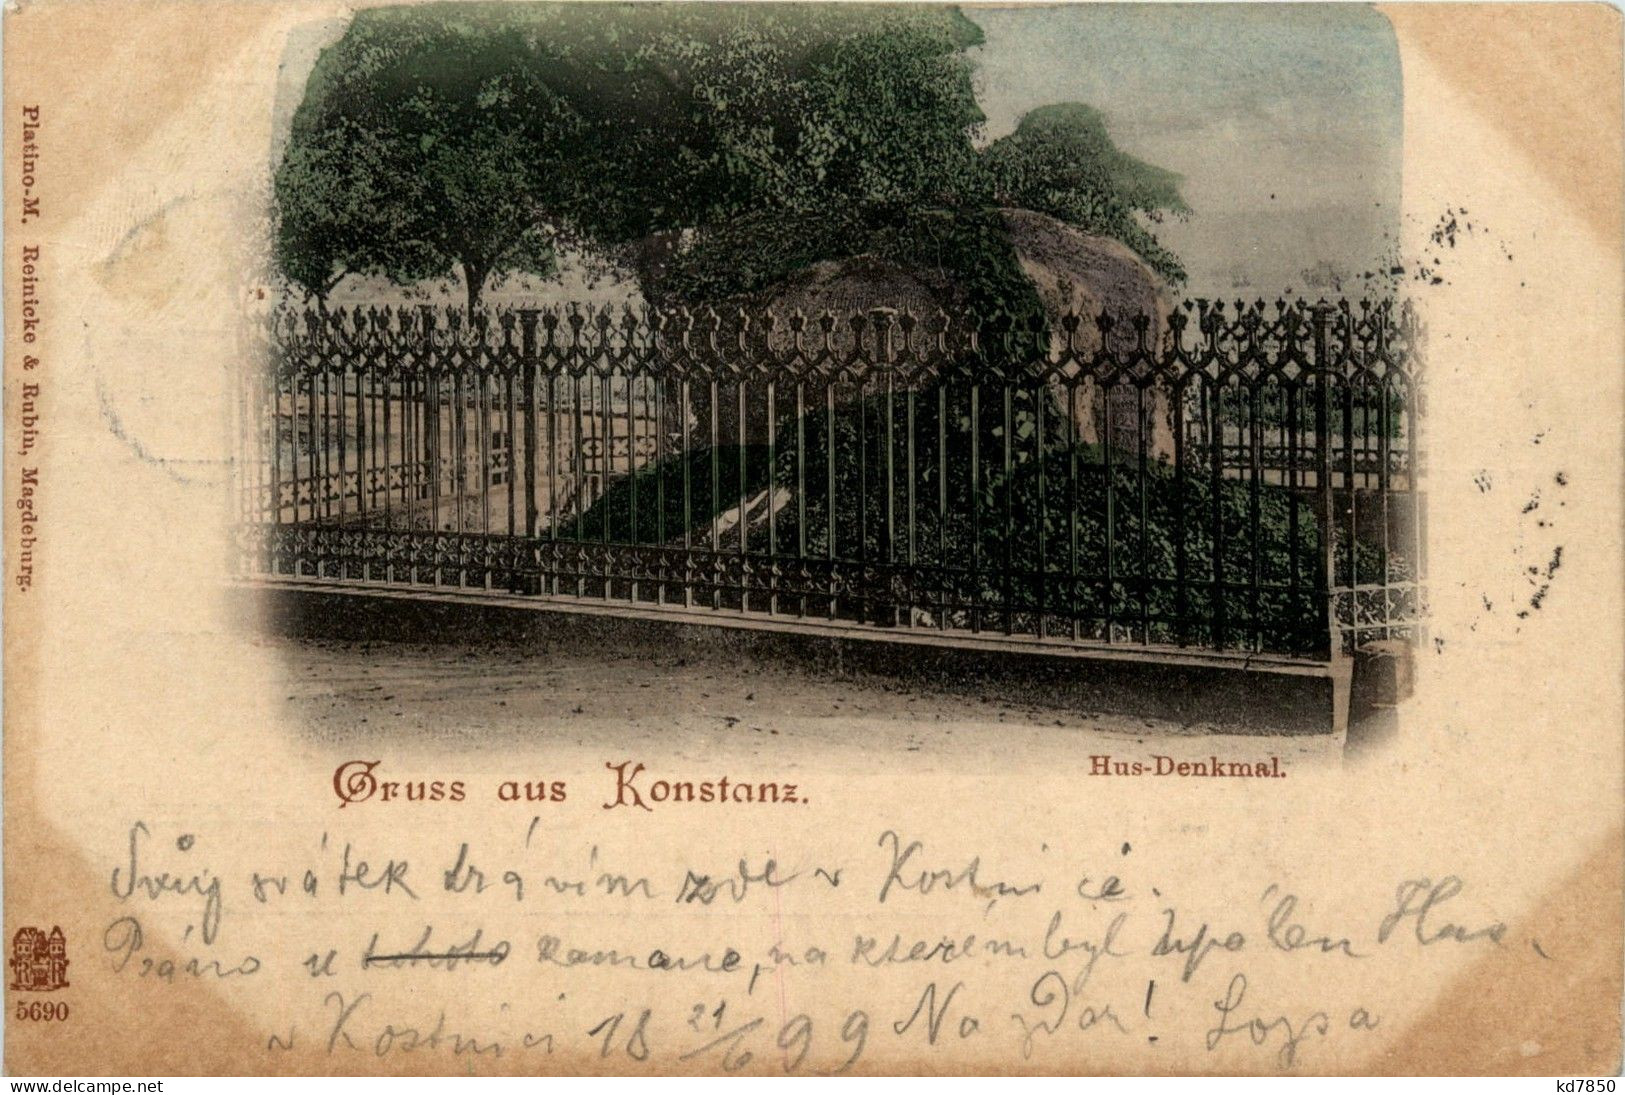 Platino-M. Reinicke & Rubin, Magdeburg.
Gruss aus Konstanz.
Hus-Denkmal.
Svůj svátek trávím zde v Kostnici.
Ráno u kamane, na kterém byl upálen Hus.
v Kostnici 18 21/6 99 Na zdar!
R R
5690
kd7850